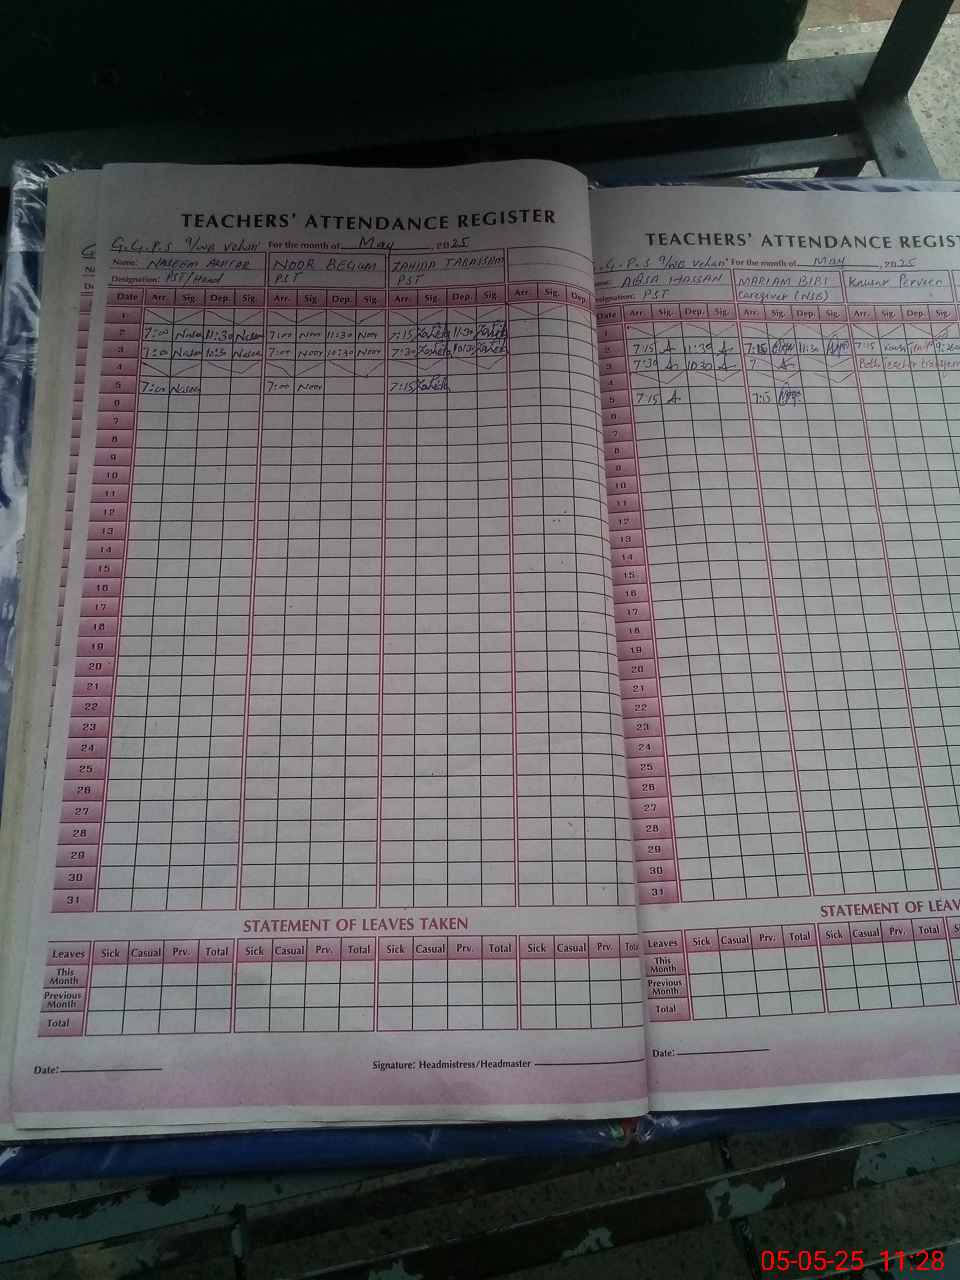 TEACHERS' ATTENDANCE REGISTER
G.G.P.S 9/WB Vehari For the month of May, 2025
Name: NASEEM AKHTAR NOOR BEGUM ZAHIDA TABASSUM
Designation: PST/Head PST PST
Date Arr. Sig. Dep. Sig. Arr. Sig. Dep. Sig. Arr. Sig. Dep. Sig. Arr. Sig. Dep.
1
2 7:00 11:30 7:00 Noor 11:30 Noor 7:15 11:30
3 7:00 10:30 7:00 Noor 10:30 Noor 7:30 10:30
4
5 7:00 7:00 Noor 7:15
6
7
8
9
10
11
12
13
14
15
16
17
18
19
20
21
22
23
24
25
26
27
28
29
30
31
STATEMENT OF LEAVES TAKEN
Leaves Sick Casual Prv. Total Sick Casual Prv. Total Sick Casual Prv. Total Sick Casual Prv. Total
This Month
Previous Month
Total
Date:
Signature: Headmistress/Headmaster
TEACHERS' ATTENDANCE REGIST
.G.P.S 9/WB Vehari For the month of May, 2025
HASSAN MARIAM BIBI Kausar Perveen
signation: PST Caregiver (NSB)
Date Arr. Sig. Dep. Sig. Arr. Sig. Dep. Sig. Arr. Sig. Dep. Sig.
1
2 7:15 A 11:30 A 7:15 11:30 7:15
3 7:30 A 10:30 A
4
5 7:15 A
6
7
8
9
10
11
12
13
14
15
16
17
18
19
20
21
22
23
24
25
26
27
28
29
30
31
STATEMENT OF LEAV
Leaves Sick Casual Prv. Total Sick Casual Prv. Total
This Month
Previous Month
Total
Date:
05-05-25 11:28